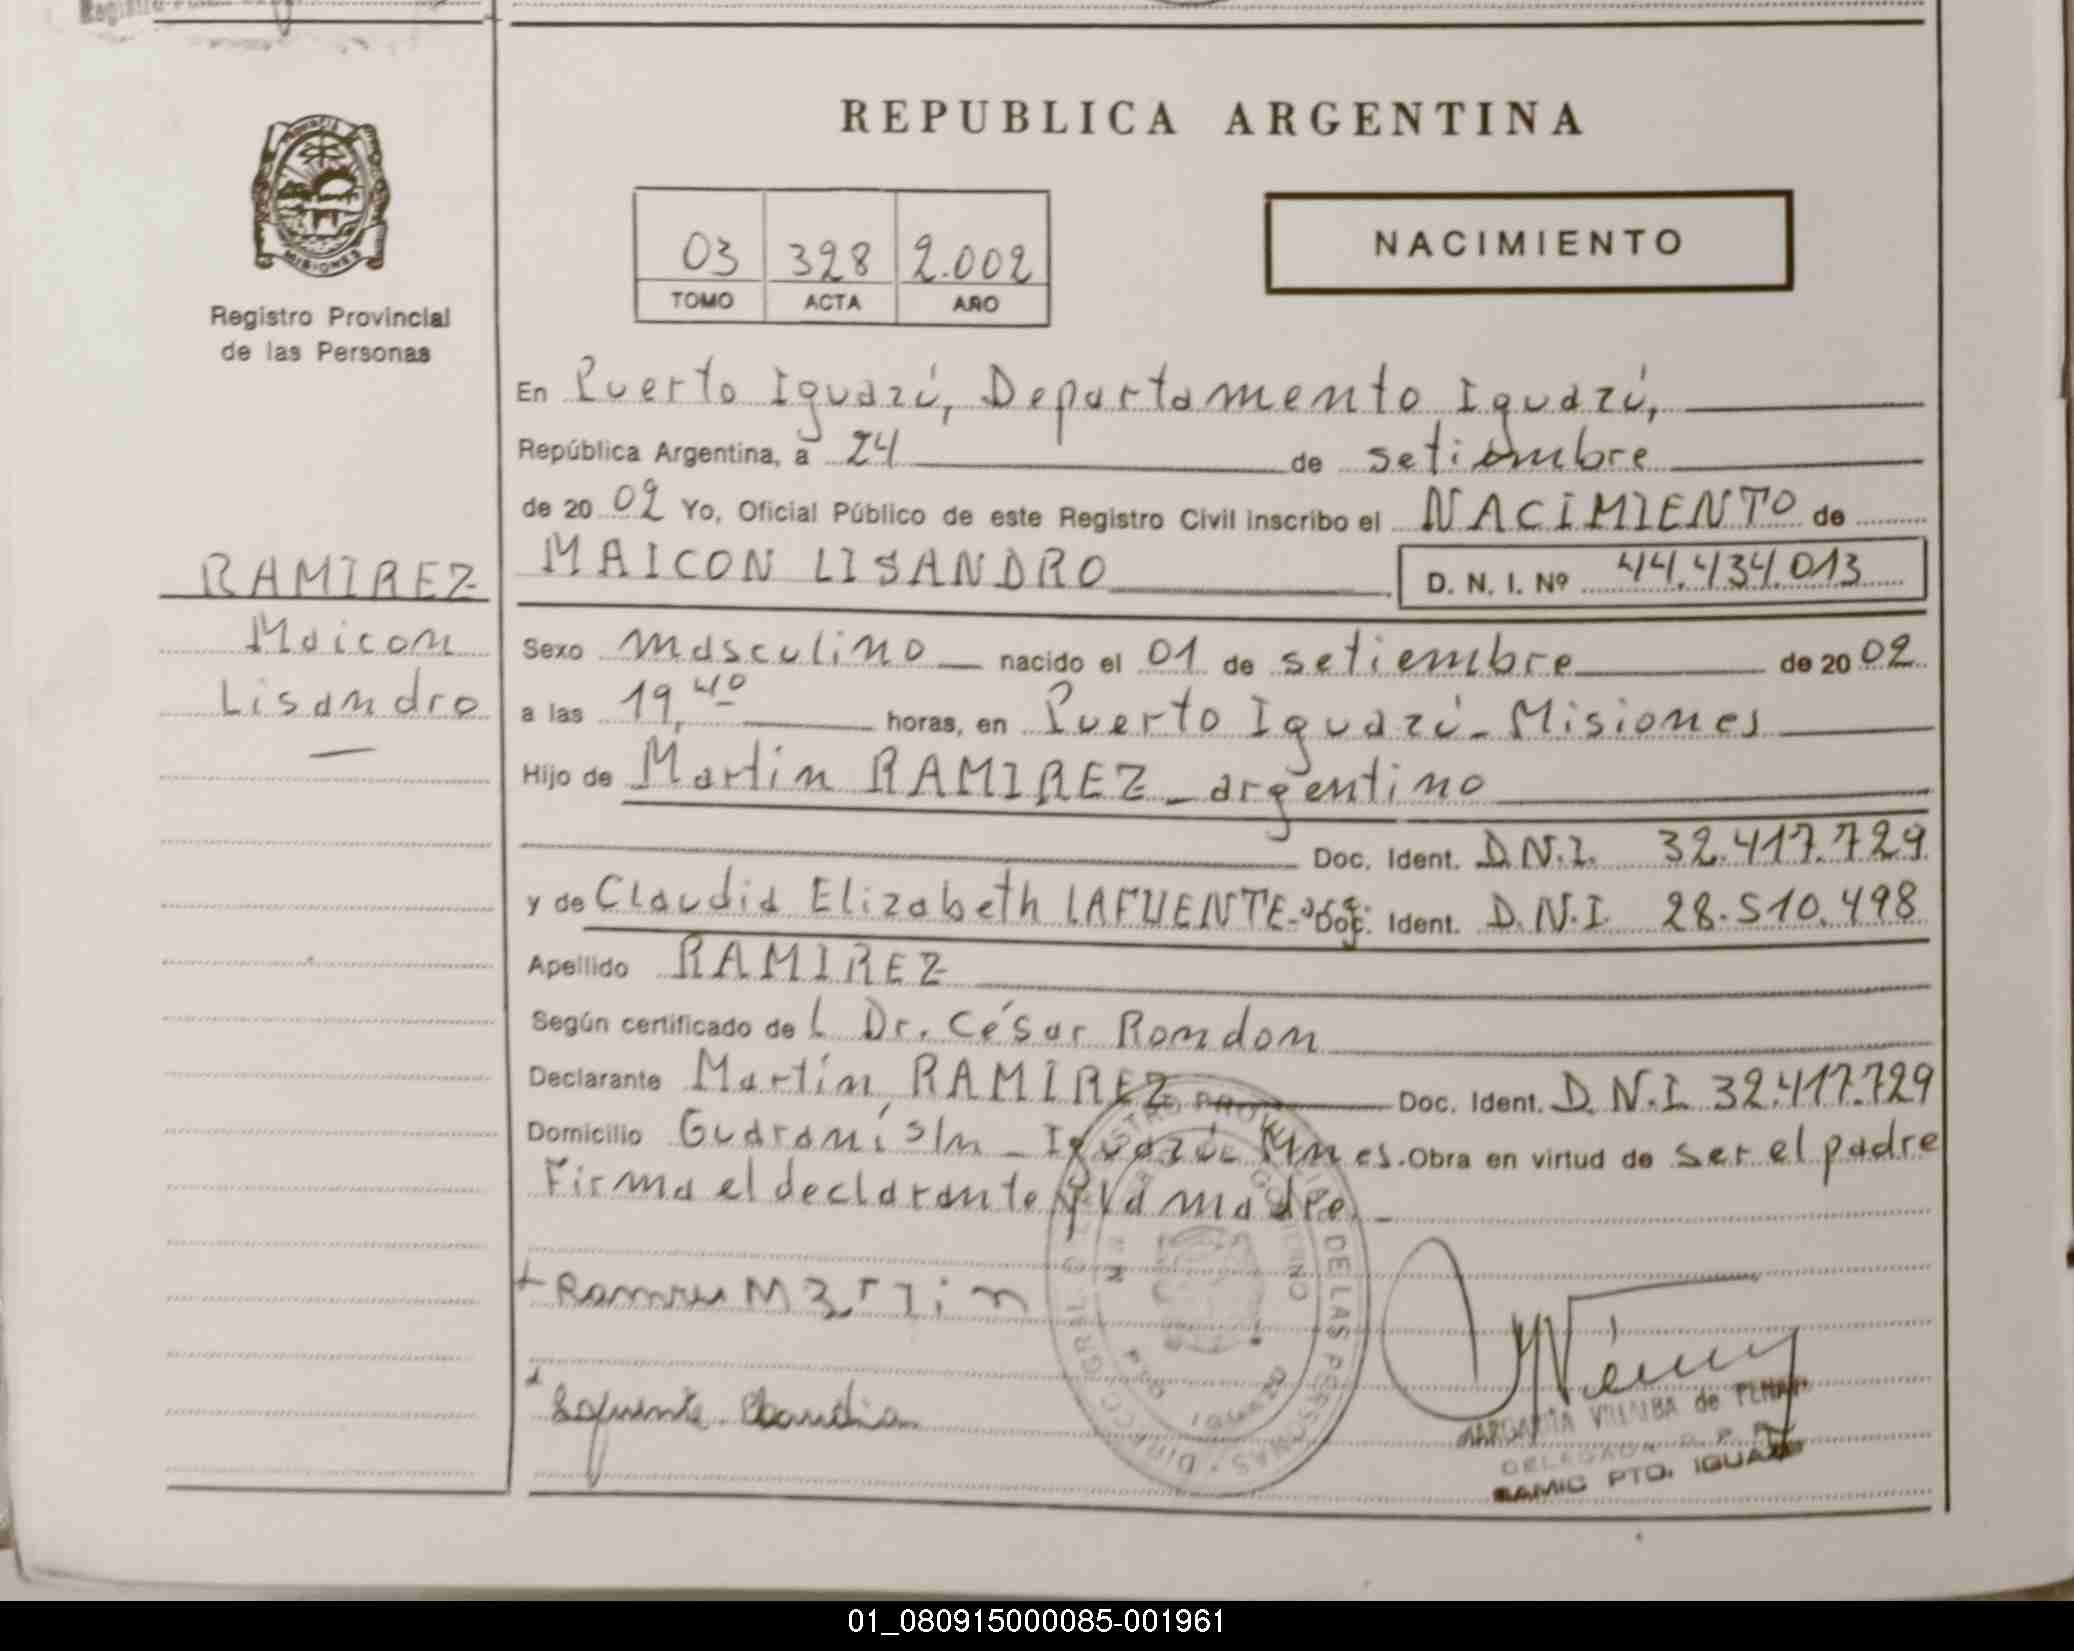 REPUBLICA ARGENTINA
PROVINCIA
MISIONES
Registro Provincial
de las Personas
03 328 2.002
TOMO ACTA AÑO
NACIMIENTO
En Puerto Iguazú, Departamento Iguazú,
República Argentina, a 24 de setiembre
de 20 02 Yo, Oficial Público de este Registro Civil inscribo el NACIMIENTO de
MAICON LISANDRO D. N. I. Nº 44.434.013
RAMIREZ
Maicon
Lisandro
Sexo masculino nacido el 01 de setiembre de 20 02
a las 19,40 horas, en Puerto Iguazú - Misiones
Hijo de Martin RAMIREZ - argentino
Doc. Ident. D.N.I. 32.417.729
y de Claudia Elizabeth LAFUENTE - Doc. Ident. D.N.I. 28.510.498
Apellido RAMIREZ
Según certificado del Dr. César Rondon
Declarante Martín RAMIREZ Doc. Ident. D.N.I. 32.417.729
Domicilio Guaraní s/n - Iguazú - Mnes. Obra en virtud de ser el padre
Firma el declarante y la madre. -
Ramires Martin
Lafuente Claudia
MARGARITA VILLALBA de
DELEGADA R. P. P.
RAMIC PTO. IGUAZU
01_080915000085-001961